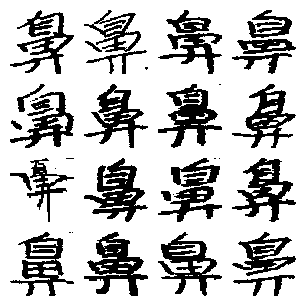 鼻鼻鼻鼻
鼻鼻鼻鼻
鼻鼻鼻鼻
鼻鼻鼻鼻